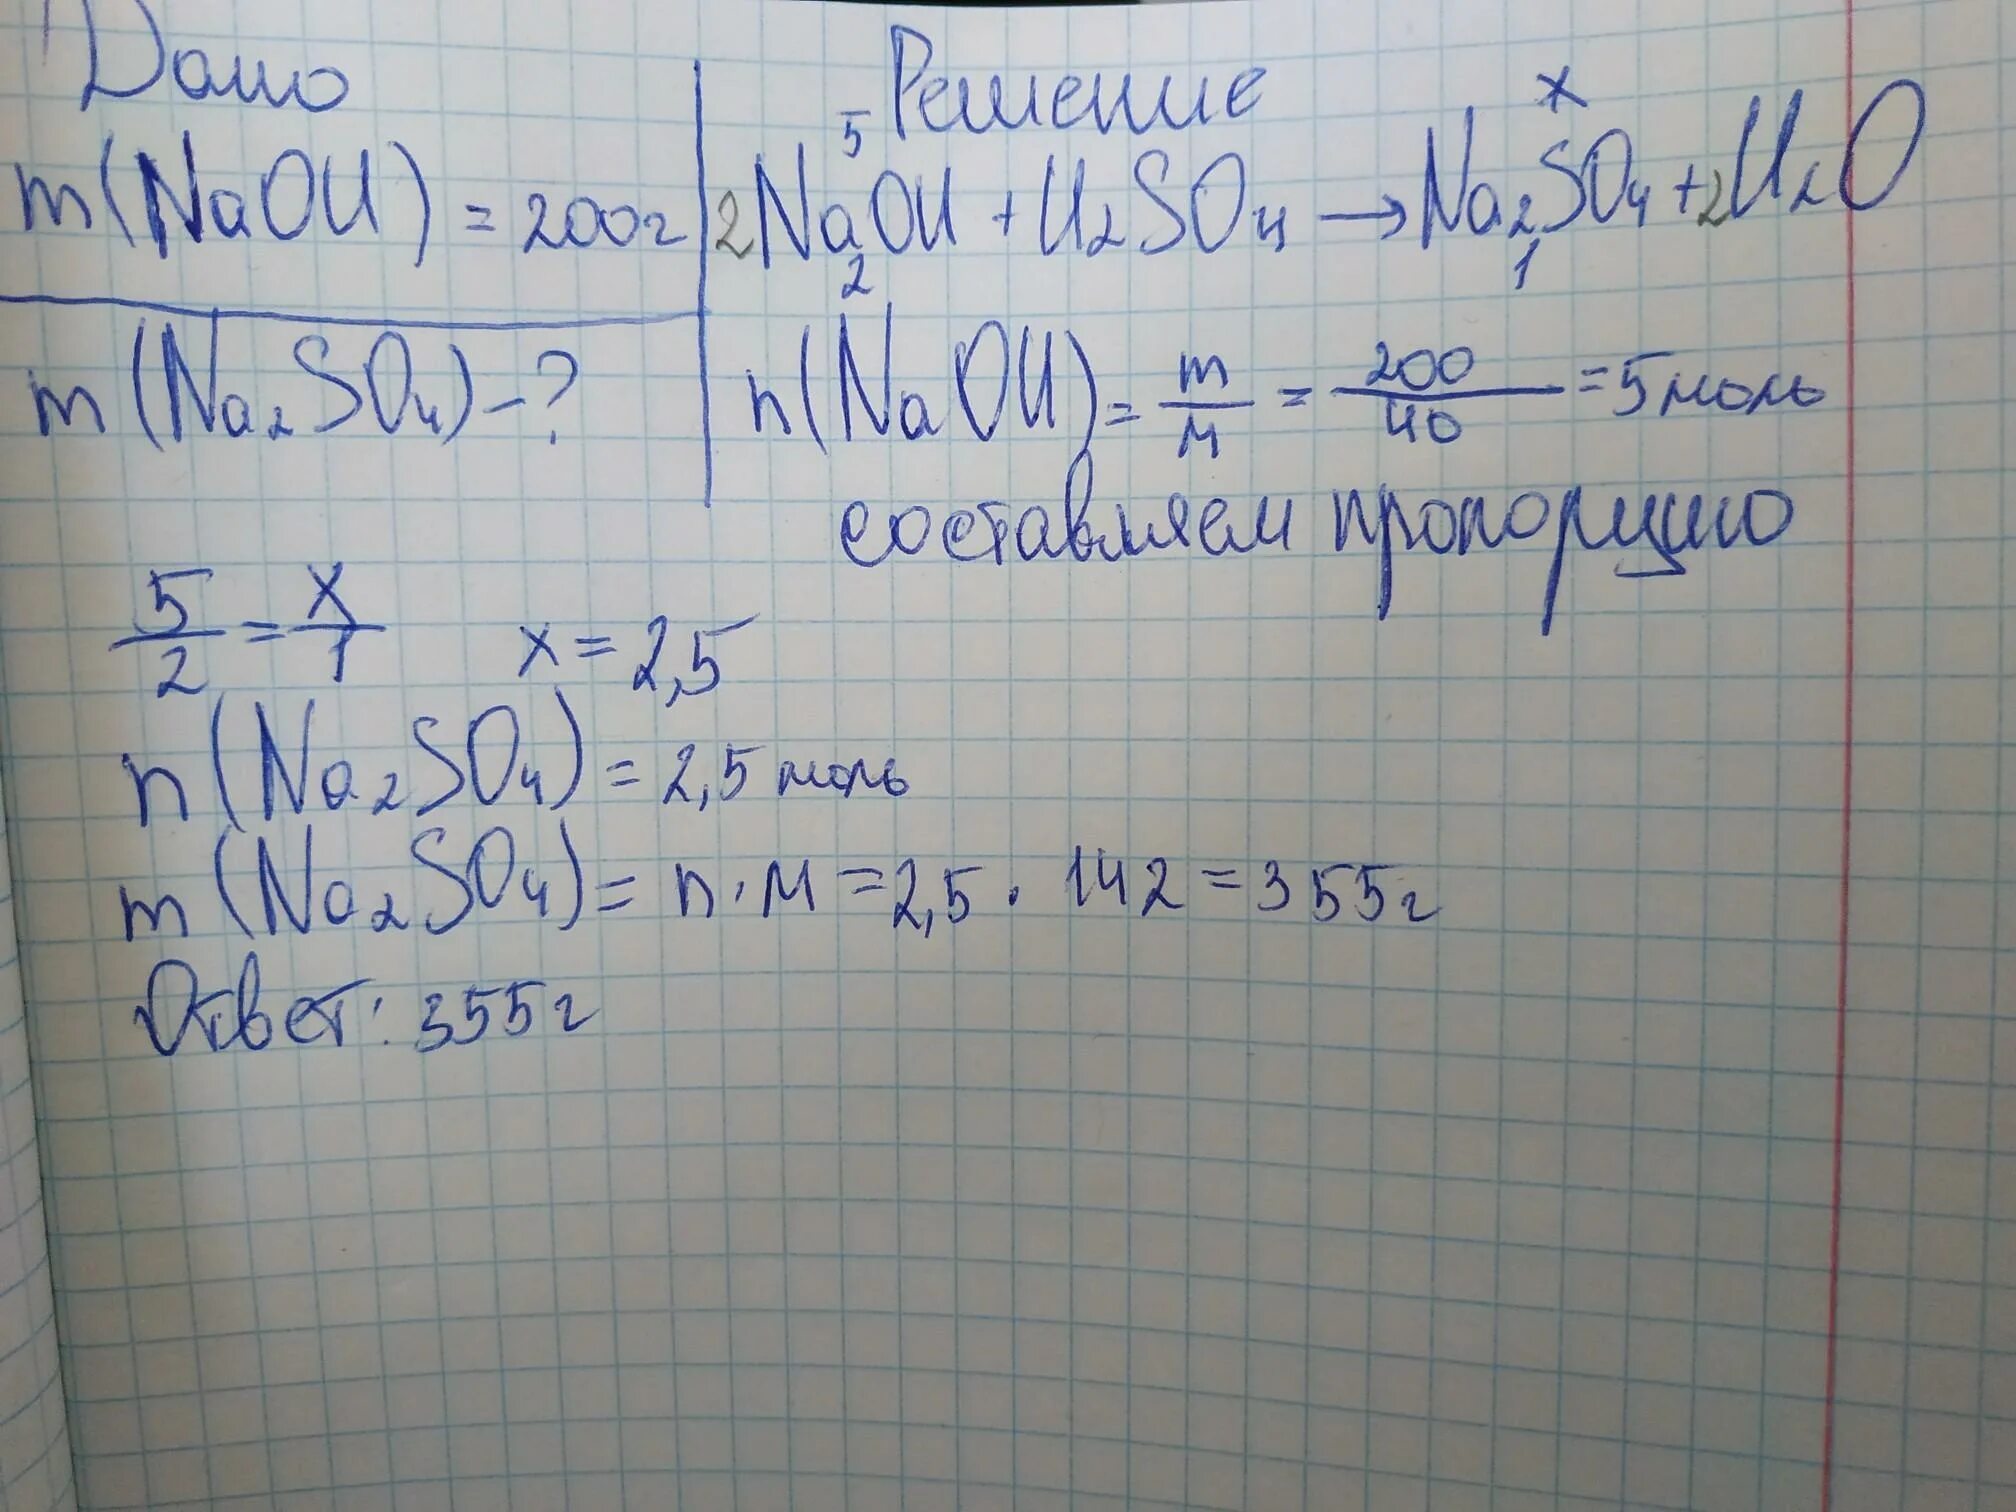 Дано
m(NaOH) = 200г
m(Na₂SO₄) - ?
Решение
5 x
2NaOH + H₂SO₄ → Na₂SO₄ + 2H₂O
2 1
n(NaOH) = m/M = 200/40 = 5 моль
составляем пропорцию
5/2 = x/1 x = 2,5
n(Na₂SO₄) = 2,5 моль
m(Na₂SO₄) = n · M = 2,5 · 142 = 355г
Ответ: 355г